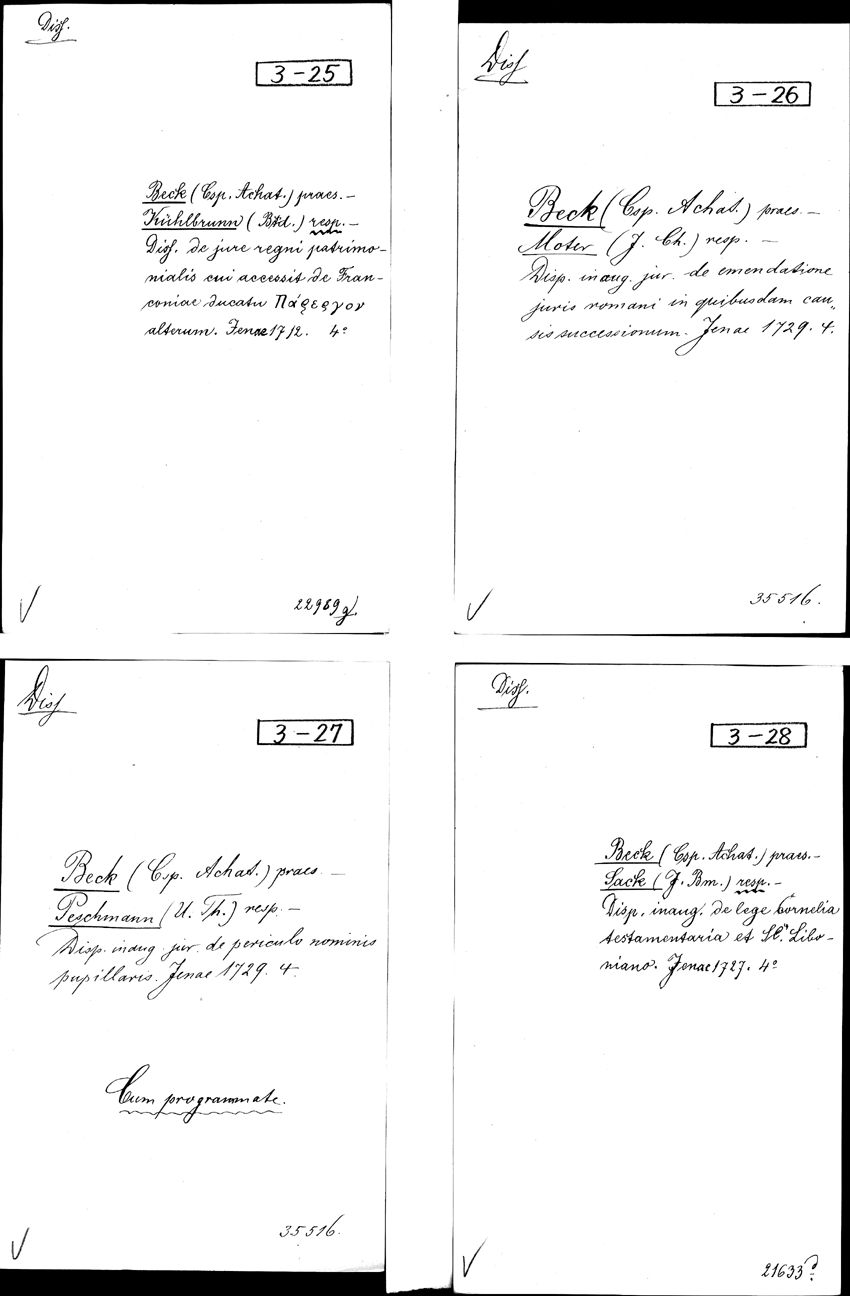 Diss.
3-25
Beck (Csp. Achat.) praes. –
Kühlbrunn (Btd.) resp. –
Diss. de jure regni patrimo-
nialis cui accessit de Fran-
coniae ducatu Πάρεργον
alterum. Jenae 1712. 4°
22989g.
Diss
3-26
Beck (Csp. Achat.) praes. –
Moter (J. Ch.) resp. –
Disp. inaug. jur. de emendatione
juris romani in quibusdam cau„
sis successionum. Jenae 1729. 4.
35516.
Diss
3-27
Beck (Csp. Achat.) praes –
Peschmann (U. Th.) resp. –
Disp. inaug. jur. de periculo nominis
pupillaris. Jenae 1729. 4.
Cum programmate.
35516.
Diss.
3-28
Beck (Csp. Achat.) praes. –
Sack (J. Bm.) resp. –
Disp. inaug. de lege Cornelia
testamentaria et Libo-
niano. Jenae 1727. 4°
21633